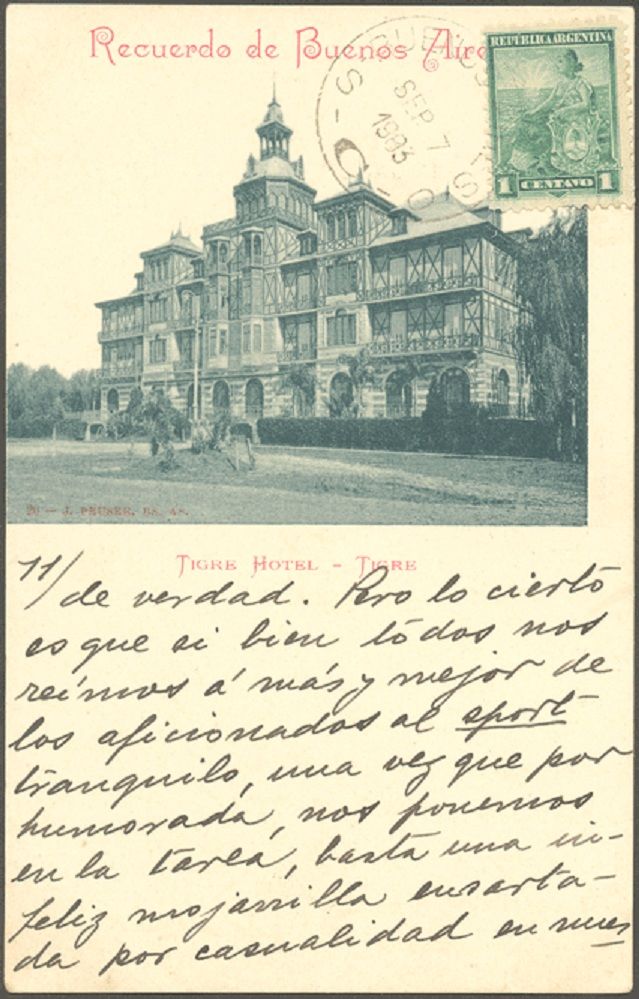 Recuerdo de Buenos Aire
BUENOS AIRES
SEP 7
1903
S - C - O
REPUBLICA ARGENTINA
1 CENTAVO 1
20 - J. PEUSER, BS. AS.
TIGRE HOTEL - TIGRE
11/
de verdad. Pero lo cierto
es que si bien todos nos
reímos á más y mejor de
los aficionados al sport
tranquilo, una vez que por
humorada, nos ponemos
en la tarea, basta una in-
feliz mojarrilla ensarta-
da por casualidad en nues